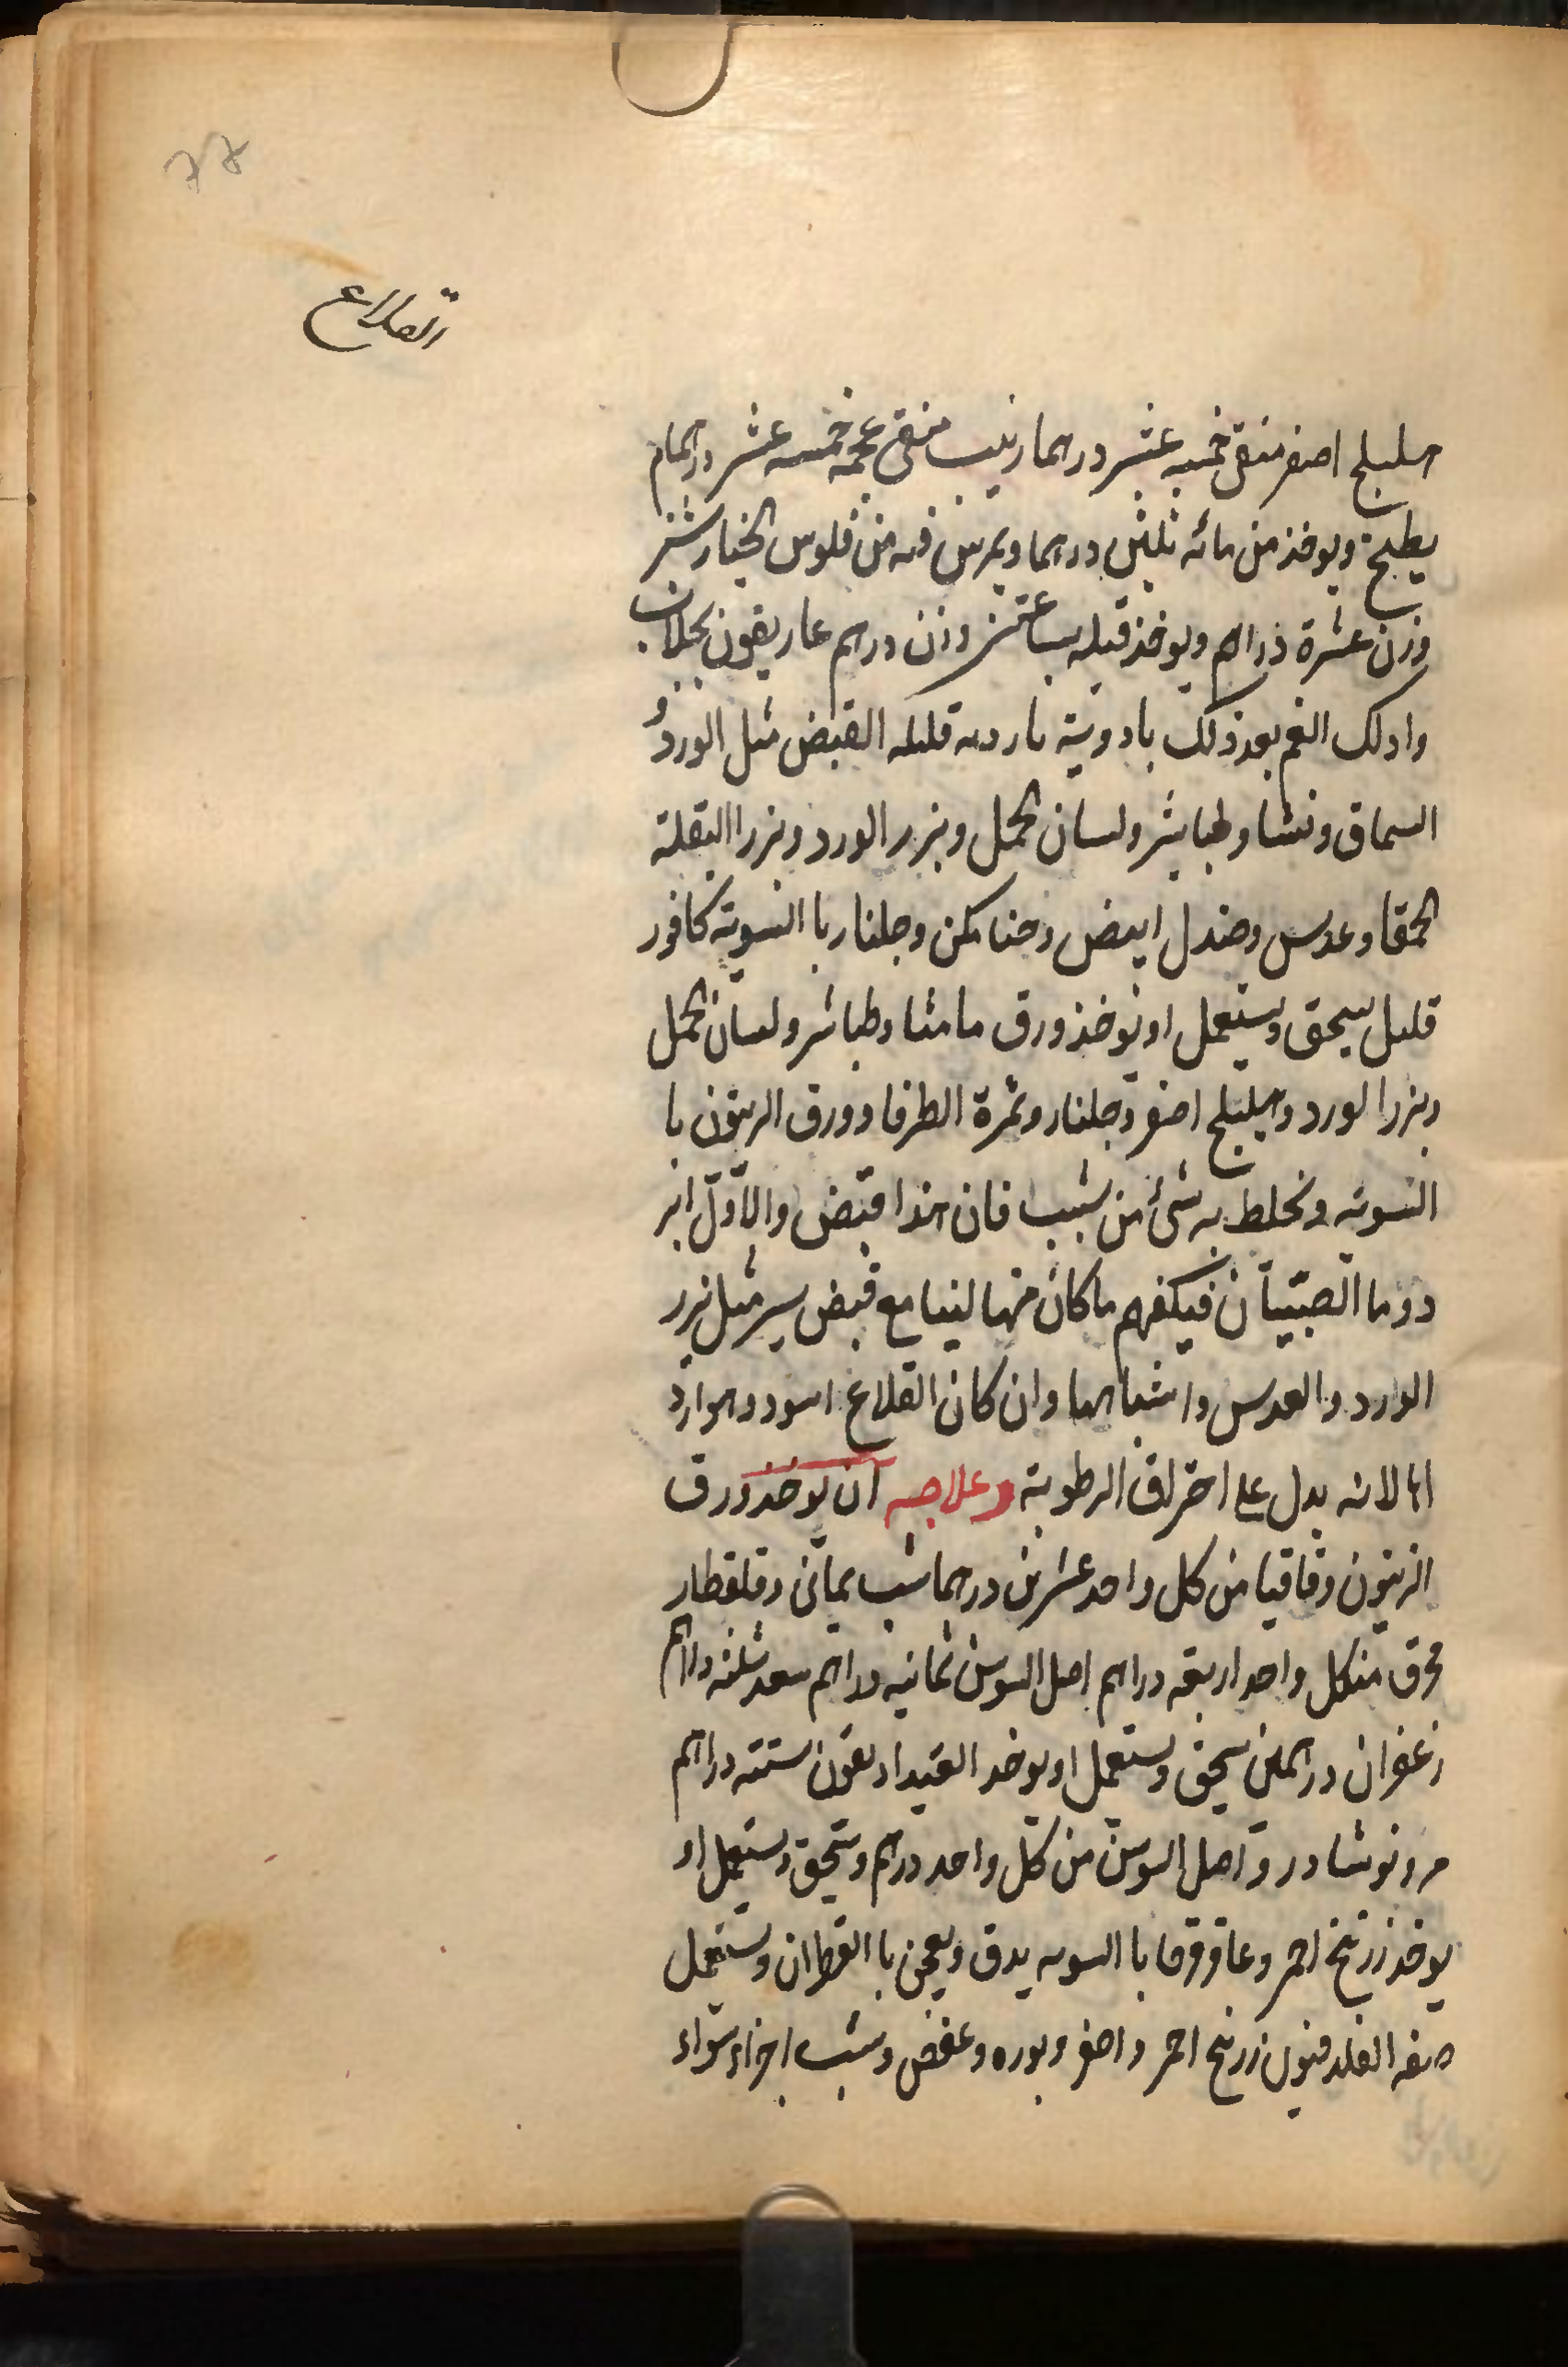 77
القلاع
هليلج اصفر منقى خمسه عشر درهما زبيب منقى عجمه خمسه عشر درهما
يطبخ ويوخذ من مائه ثلثين درهما ويمرس فيه من فلوس الخيار شنبر
وزن عشرة دراهم ويوخذ قبله بساعتين وزن درهم غاريقون بجلاب
وادلك الفم بعد ذلك بادوية بارده قليله القبض مثل الورد و
السماق ونشا وطباشير ولسان الحمل وبزر الورد وبزر البقلة
الحمقا وعدس وصندل ابيض وجلنار با السوية كافور
قليل يسحق ويستعمل او يوخذ ورق مامثا وطباشر ولسان الحمل
وبزر الورد وهليلج اصفر وجلنار وثمرة الطرفا وورق الزيتون با
السويه ونخلط به شئ من شب فان هذا اقبض والاول ابر
دوما الصبيان فيكفيهم ما كان منها لينا مع قبض يسير مثل بزر
الورد والعدس واشباهها وان كان القلاع اسود وهو اردا
لانه يدل على احتراق الرطوبة وعلاجه ان يوخذ ورق
الزيتون وقاقيا من كل واحد عشرين درهما شب يمانى وقلقطار
محرق منكل واحد اربعه دراهم اصل السوسن ثمانيه دراهم سعد ثلثه دراهم
زعفران درهمين يسحق ويستعمل او يوخد ستته دراهم
مر ونوشادر واصل السوسن من كل واحد درهم ويسحق ويستعمل او
يوخذ زرنيخ احمر وعاقرقرحا با السويه يدق ويعجن با القطران ويستعمل
صفه الفلدفيون زرنيخ احمر واصفر وبوره وعفص وشب اجزاء سواء